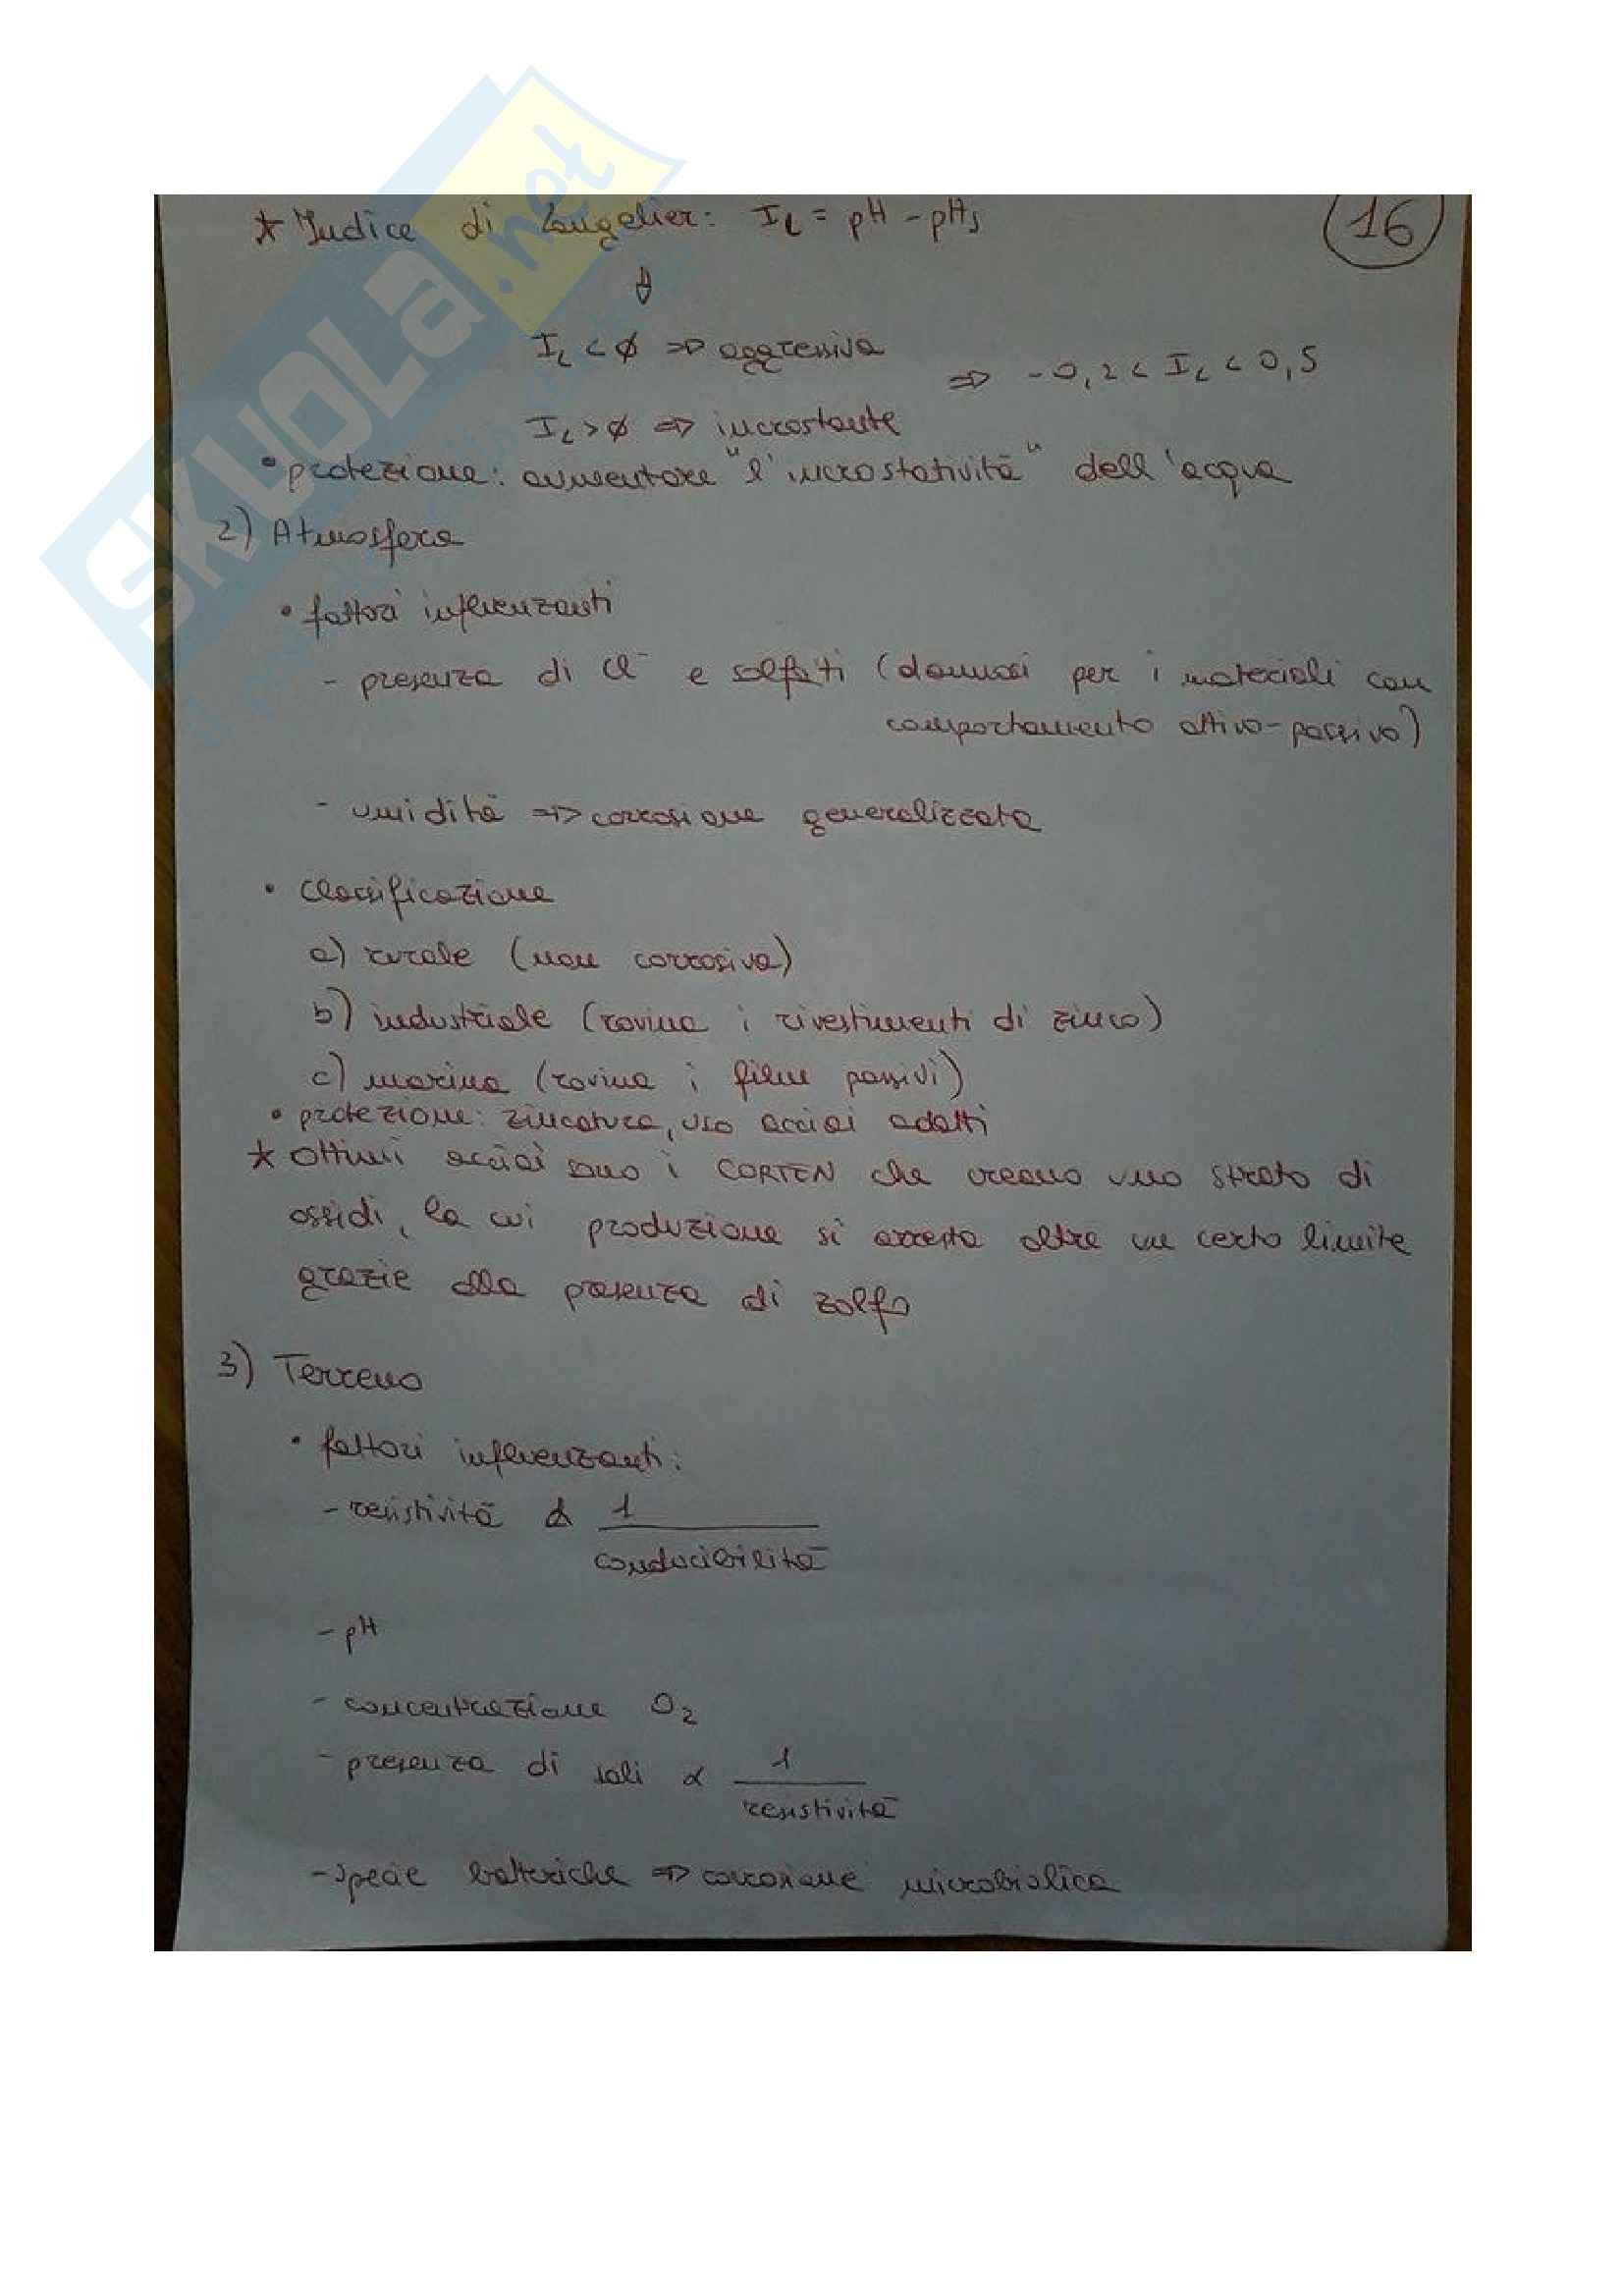 * Indice di Langelier: IL = pH - pHs
16
IL < ∅ ⇒ aggressiva
⇒ -0,2 < IL < 0,5
IL > ∅ ⇒ incrostante
• protezione: aumentare "l'incrostatività" dell'acqua
2) Atmosfera
• fattori influenzanti
- presenza di Cl⁻ e solfati (dannosi per i materiali con
comportamento attivo-passivo)
- umidità ⇒ corrosione generalizzata
• Classificazione
a) rurale (non corrosiva)
b) industriale (rovina i rivestimenti di zinco)
c) marina (rovina i film passivi)
• protezione: zincatura, uso acciai adatti
* Ottimi acciai sono i CORTEN che creano uno strato di
ossidi, la cui produzione si arresta oltre un certo limite
grazie alla presenza di zolfo
3) Terreno
• fattori influenzanti:
- resistività ∝ 1
conducibilità
- pH
- concentrazione O₂
- presenza di sali ∝ 1
resistività
- specie batteriche ⇒ corrosione microbiolica
SKUOLA.net